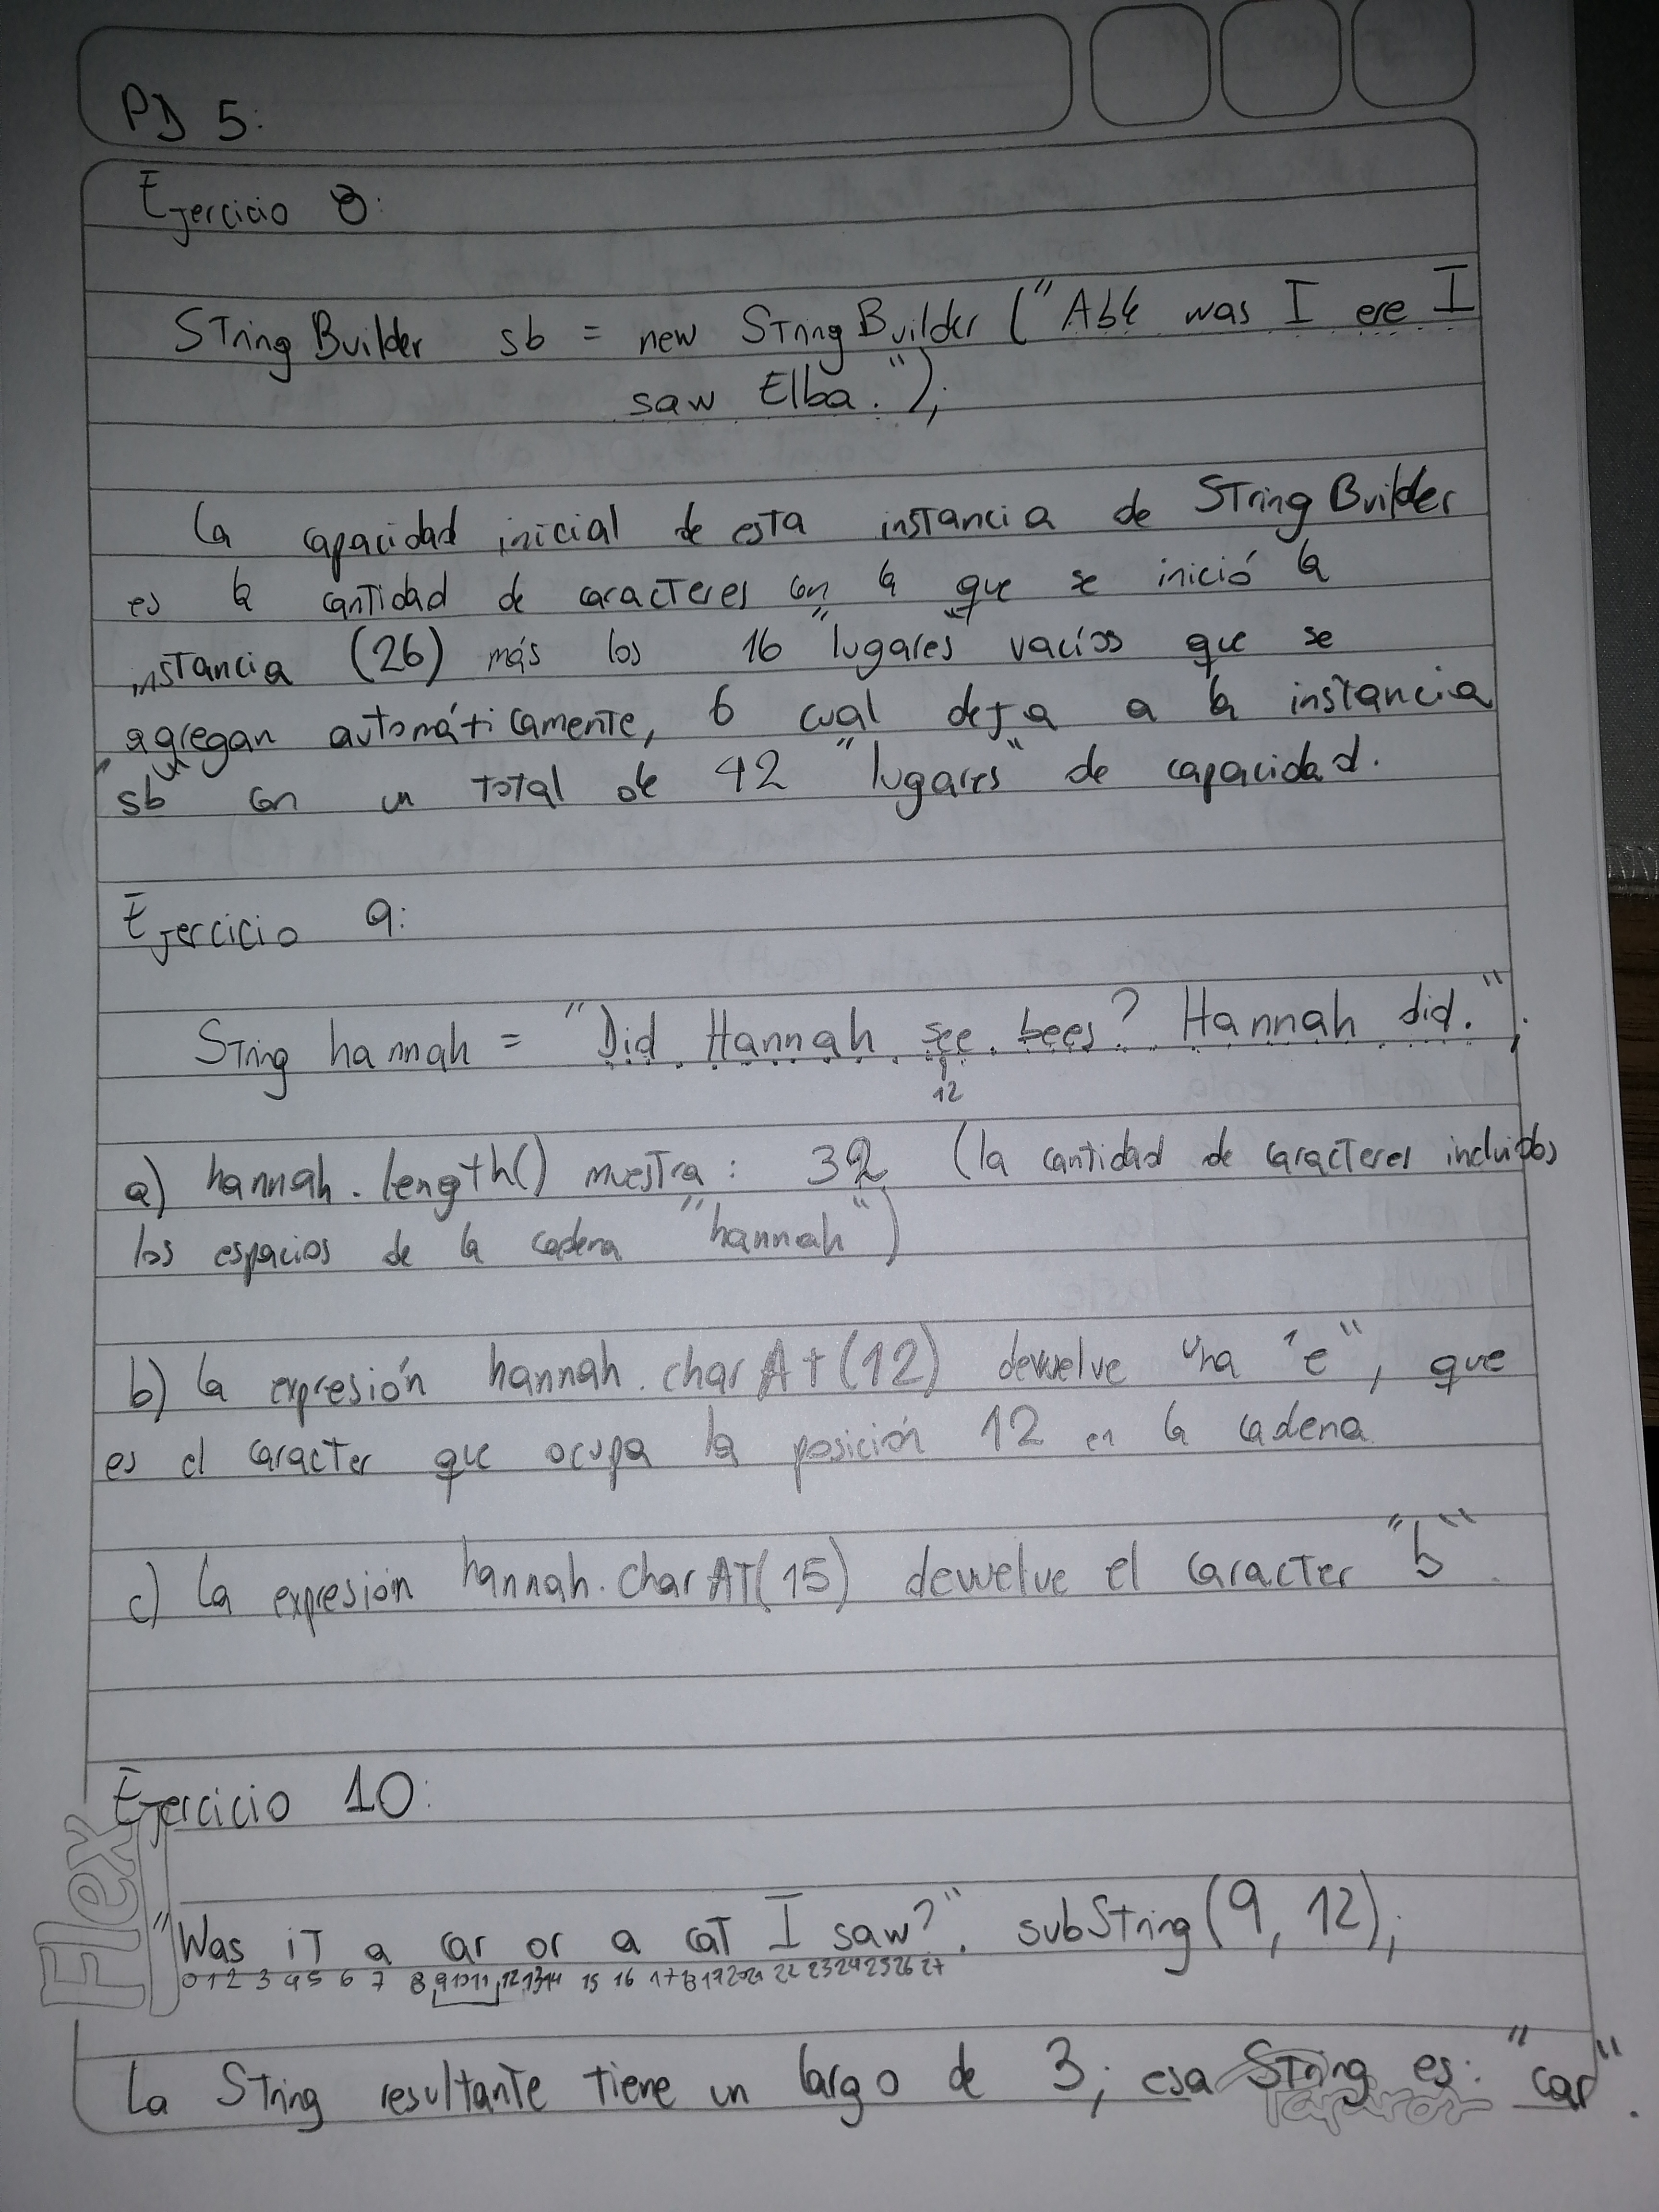 PD 5:
Ejercicio 8:
String Builder sb = new String Builder ("Able was I ere I
saw Elba.");
La capacidad inicial de esta instancia de String Builder
es la cantidad de caracteres con la que se inició la
instancia (26) más los 16 "lugares" vacíos que se
agregan automáticamente, lo cual deja a la instancia
"sb" con un total de 42 "lugares" de capacidad.
Ejercicio 9:
String hannah = "Did Hannah see bees? Hannah did.";
12
a) hannah.length() muestra: 32 (la cantidad de caracteres incluidos
los espacios de la cadena "hannah")
b) La expresión hannah.charAt(12) devuelve una "e", que
es el caracter que ocupa la posición 12 en la cadena
c) La expresión hannah.charAT(15) devuelve el caracter "b".
Ejercicio 10:
"Was iT a car or a caT I saw?". subString(9, 12);
0 1 2 3 4 5 6 7 8 9 10 11 12 13 14 15 16 17 18 19 20 21 22 23 24 25 26 27
La String resultante tiene un largo de 3; esa String es: "car".
Flex
Paparoz